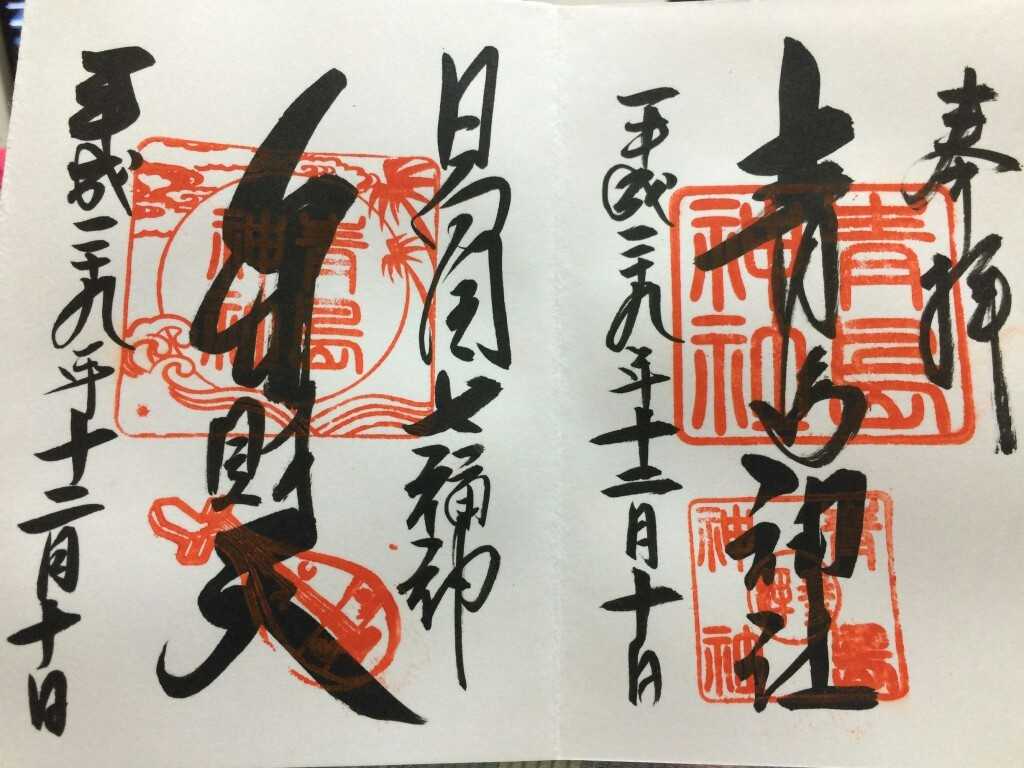 奉拝
青島神社
平成二十九年十二月十日
青島
神社
日向国七福神
弁財天
平成二十九年十二月十日
青島
神社